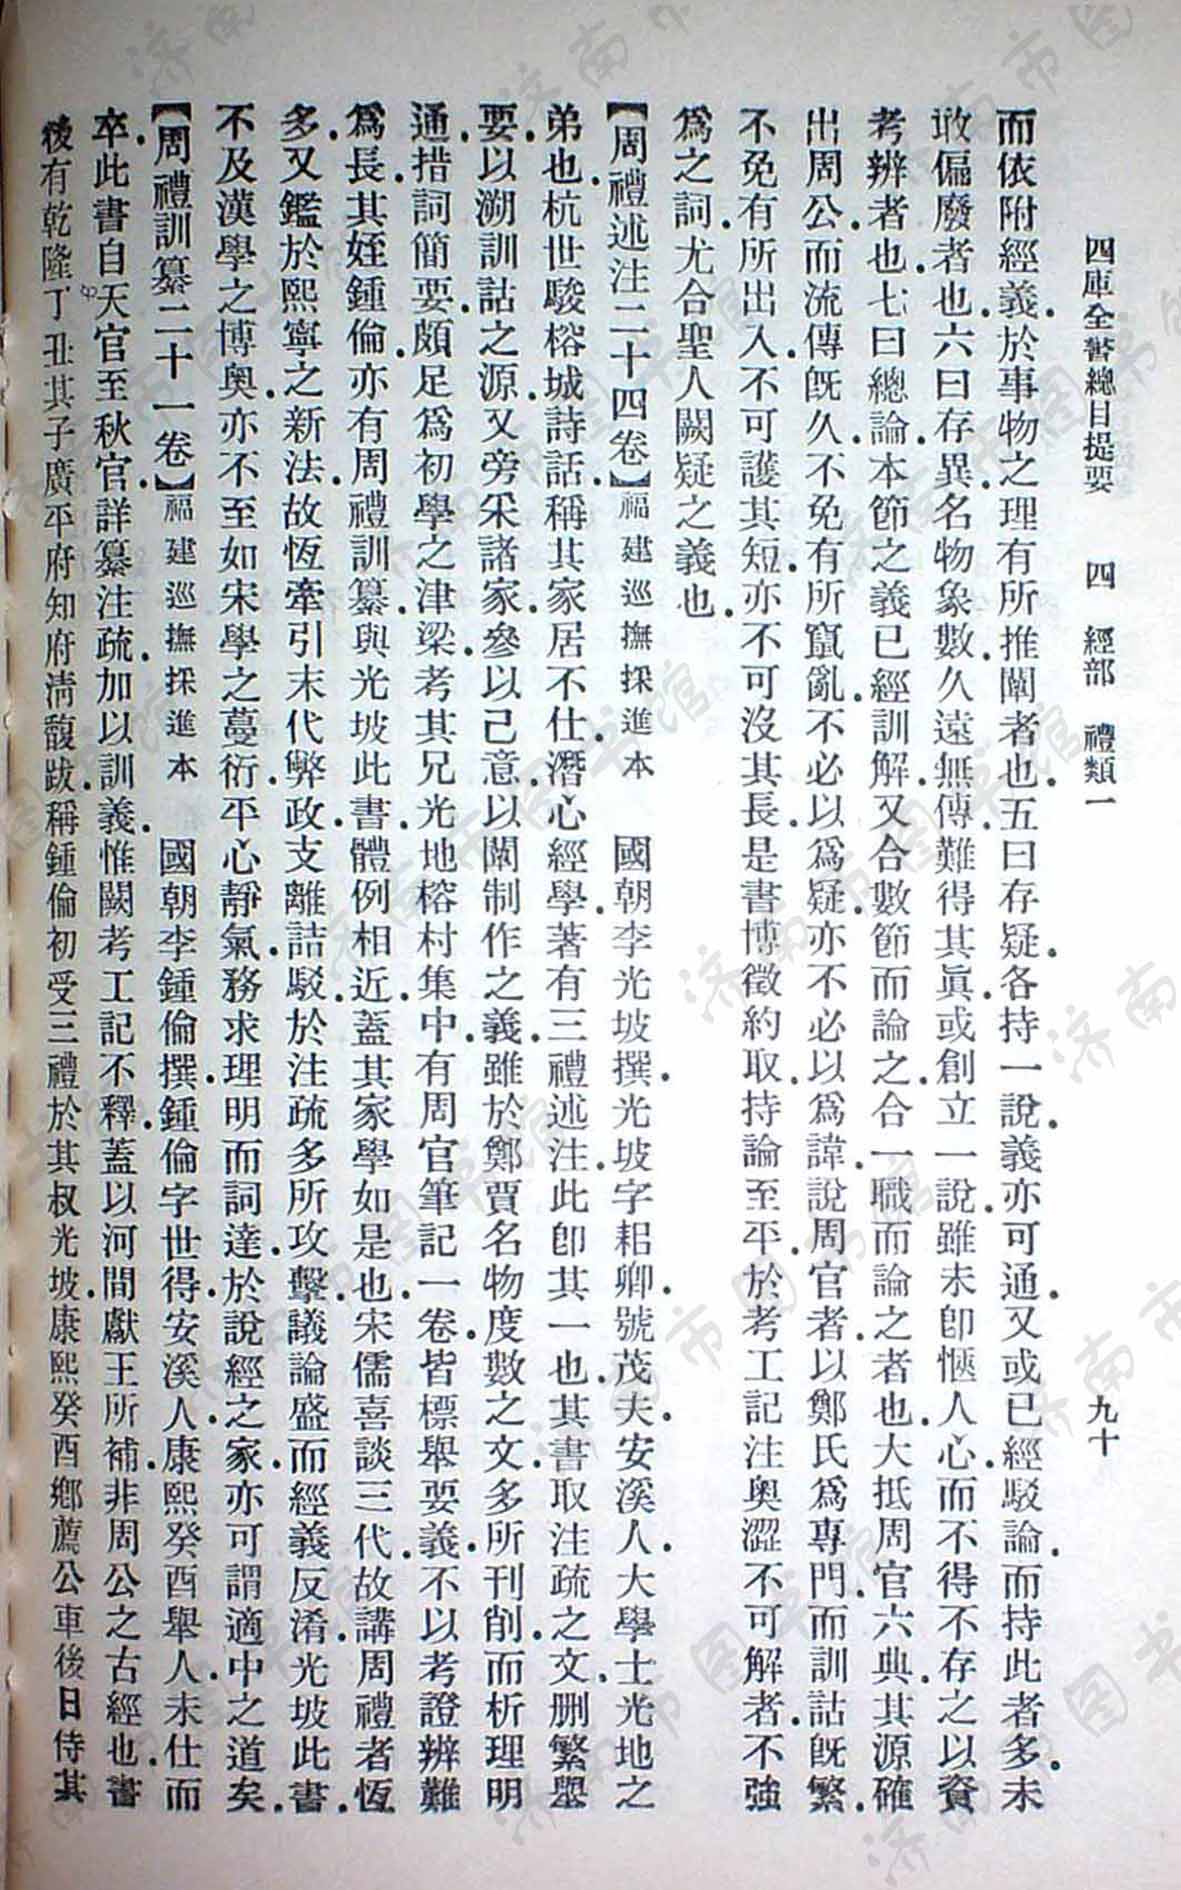 四庫全書總目提要　四　經部　禮類一　九十
而依附經義於事物之理有所推闡者也五曰存疑各持一說義亦可通又或已經駁論而持此者多未
敢偏廢者也六曰存異名物象數久遠無傳難得其眞或創立一說雖未卽愜人心而不得不存之以資
考辨者也七曰總論本節之義已經訓解又合數節而論之合一職而論之者也大抵周官六典其源確
出周公而流傳旣久不免有所竄亂不必以爲疑亦不必以爲諱說周官者以鄭氏爲專門而訓詁旣繁
不免有所出入不可護其短亦不可沒其長是書博徵約取持論至平於考工記注奧澀不可解者不強
爲之詞尤合聖人闕疑之義也
【周禮述注二十四卷】福建巡撫採進本　國朝李光坡撰光坡字耜卿號茂夫安溪人大學士光地之
弟也杭世駿榕城詩話稱其家居不仕潛心經學著有三禮述注此卽其一也其書取注疏之文刪繁舉
要以溯訓詁之源又旁采諸家參以己意以闡制作之義雖於鄭賈名物度數之文多所刊削而析理明
通措詞簡要頗足爲初學之津梁考其兄光地榕村集中有周官筆記一卷皆標舉要義不以考證辨難
爲長其姪鍾倫亦有周禮訓纂與光坡此書體例相近蓋其家學如是也宋儒喜談三代故講周禮者恆
多又鑑於熙寧之新法故恆牽引末代弊政支離詰駁於注疏多所攻擊議論盛而經義反淆光坡此書
不及漢學之博奧亦不至如宋學之蔓衍平心靜氣務求理明而詞達於說經之家亦可謂適中之道矣
【周禮訓纂二十一卷】福建巡撫採進本　國朝李鍾倫撰鍾倫字世得安溪人康熙癸酉舉人未仕而
卒此書自天官至秋官詳纂注疏加以訓義惟闕考工記不釋蓋以河間獻王所補非周公之古經也書
後有乾隆丁丑其子廣平府知府淸馥跋稱鍾倫初受三禮於其叔光坡康熙癸酉鄉薦公車後日侍其
济南市图书馆